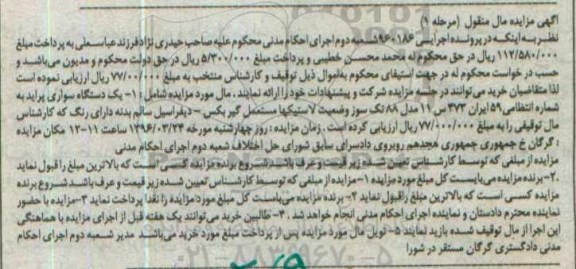 آگهی مزایده مال منقول (مرحله ۱)
نظر به اینکه در پرونده اجرایی ۹۶۰۱۸۶ شعبه دوم اجرای احکام مدنی محکوم علیه صاحب حیدری نژاد فرزند عباسعلی به پرداخت مبلغ
۱۱۲/۵۸۰/۰۰۰ ریال در حق محکوم له محمد محسن خطیبی و پرداخت مبلغ ۵/۳۰۰/۰۰۰ ریال در حق دولت محکوم و مدیون می‌باشد و
حسب درخواست محکوم له در جهت استیفای محکوم به اموال ذیل توقیف و کارشناس منتخب به مبلغ ۷۷/۰۰۰/۰۰۰ ریال ارزیابی نموده است
لذا متقاضیان خرید می توانند در جلسه مزایده شرکت و پیشنهادات خود را ارائه نمایند. مال مورد مزایده شامل: ۱- یک دستگاه سواری پراید به
شماره انتظامی ۵۹ ایران ۴۷۳ س ۱۱ مدل ۸۸ تک سوز وضعیت لاستیکها مستعمل گیربکس - دیفراسیل سالم بدنه دارای رنگ که کارشناس
مال توقیفی را به مبلغ ۷۷/۰۰۰/۰۰۰ ریال ارزیابی کرده است. زمان مزایده: روز چهارشنبه مورخه ۱۳۹۶/۰۳/۲۴ ساعت ۱۱-۱۲ مکان مزایده
: گرگان خ جمهوری جمهوری هجدهم روبروی دادسرای سابق شورای حل اختلاف شعبه دوم اجرای احکام مدنی
مزایده از مبلغی که توسط کارشناس تعیین شده زیر قیمت و عرف باشد شروع برنده مزایده کسی است که بالاترین مبلغ را قبول نماید
۲-برنده مزایده می‌بایست کل مبلغ مورد مزایده ۱-مزایده از مبلغی که توسط کارشناس تعیین شده زیر قیمت و عرف باشد شروع برنده
مزایده کسی است که بالاترین مبلغ را قبول نماید ۲- برنده مزایده می‌بایست کل مبلغ مورد مزایده را نقدا پرداخت نماید ۳-مزایده با حضور
نماینده محترم دادستان و نماینده اجرای احکام مدنی انجام خواهد شد. ۴- طالبین خرید می توانند یک هفته قبل از اجرای مزایده با هماهنگی
این اجرا از مال توقیف شده بازید نمایند ۵- تویل مال مورد مزایده پس از پرداخت مبلغ مورد خرید می‌باشد مدیر شعبه دوم اجرای احکام
مدنی دادگستری گرگان مستقر در شورا